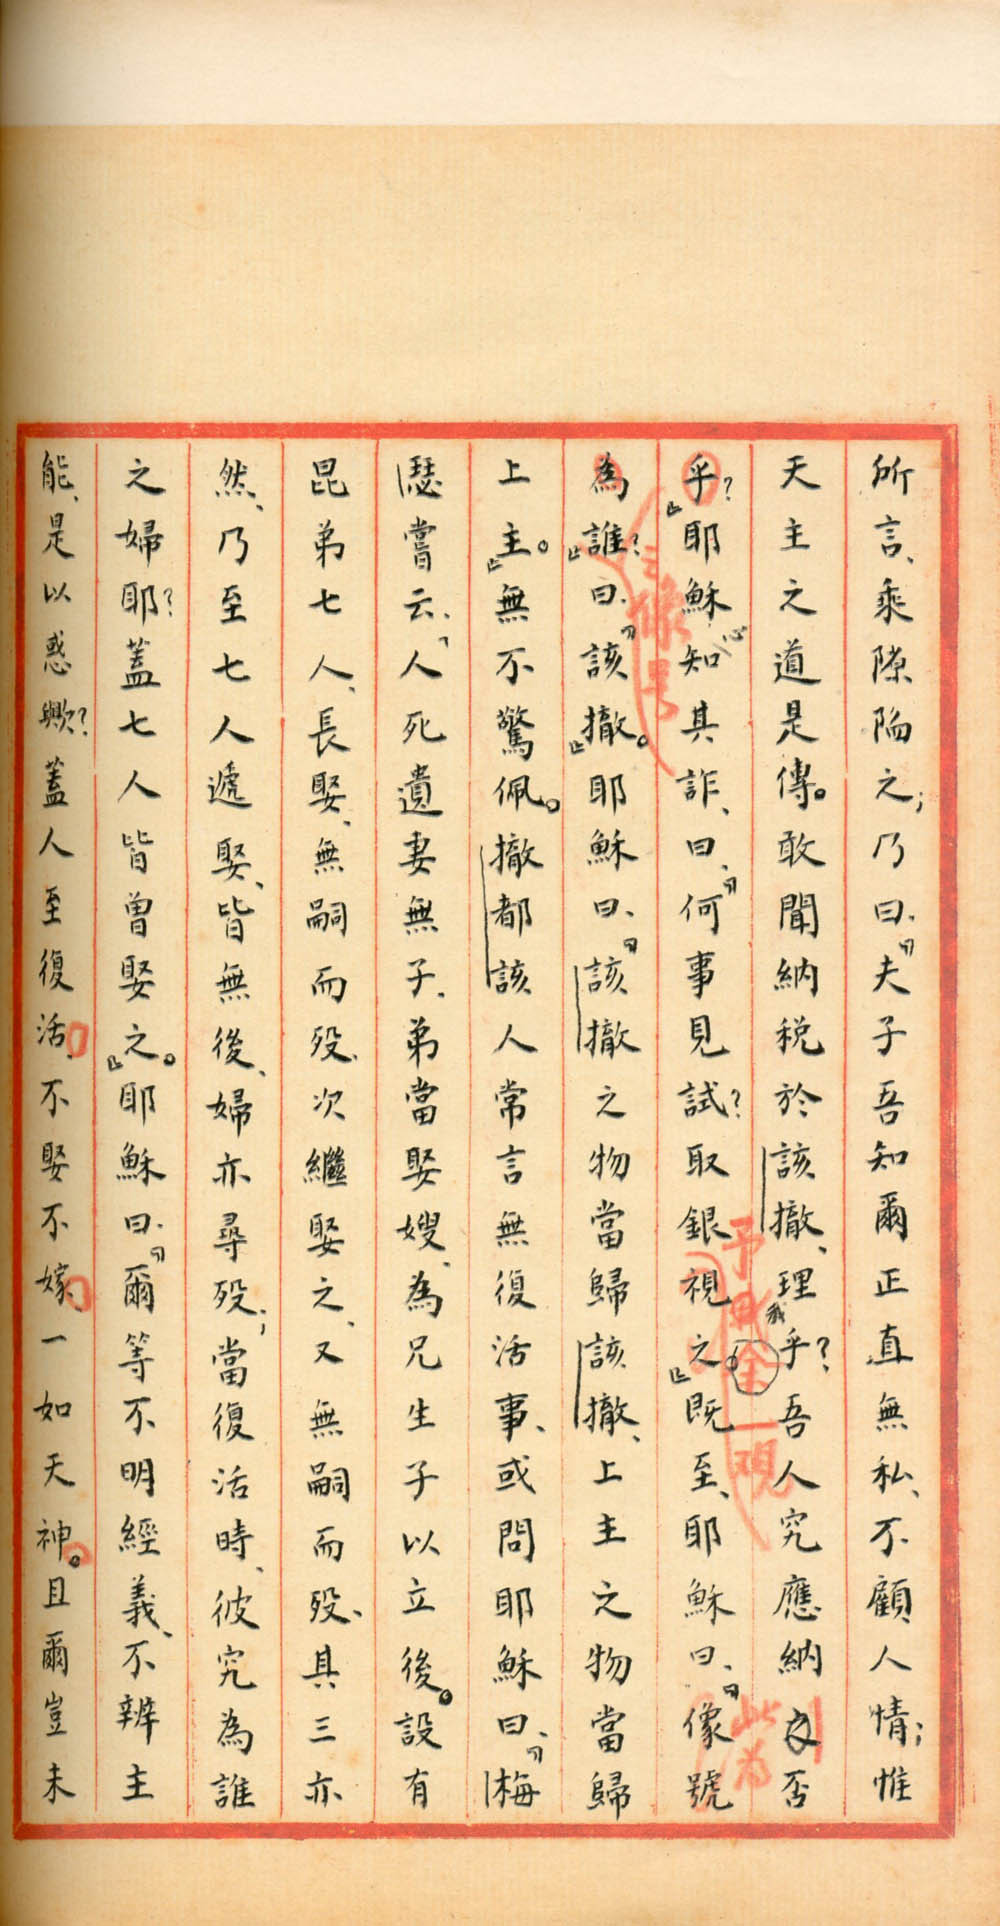 所言、乘隙陷之；乃曰、『夫子吾知爾正直無私、不顧人情；惟
天主之道是傳。敢聞納稅於該撒、理乎？吾人究應納否
乎？』耶穌知其詐、曰、『何事見試？取銀視之』既至、耶穌曰、『像號
為誰？』曰、『該撒。』耶穌曰、『該撒之物當歸該撒、上主之物當歸
上主。』無不驚佩。撒都該人常言無復活事、或問耶穌曰、『梅
瑟嘗云、「人死遺妻無子、弟當娶嫂、為兄生子以立後。設有
昆弟七人、長娶、無嗣而歿、次繼娶之、又無嗣而歿、其三亦
然、乃至七人遞娶、皆無後、婦亦尋歿；當復活時、彼究為誰
之婦耶？蓋七人皆曾娶之。』耶穌曰、『爾等不明經義、不辨主
能、是以惑歟？蓋人至復活、不娶不嫁、一如天神。且爾豈未